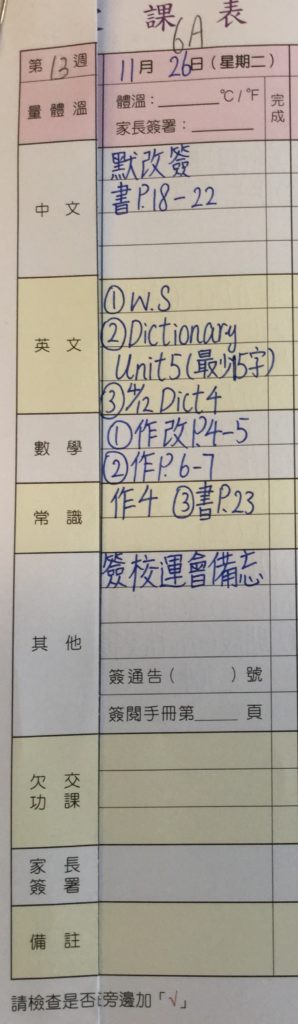 課表
6A
第13週 11月26日(星期二)
量體溫 體溫:______℃/℉ 完成
家長簽署:______
中文 默改簽
書P.18-22
英文 ①W.S
②Dictionary
Unit5(最少15字)
③4/12 Dict4
數學 ①作改P.4-5
②作P.6-7
常識 作4 ③書P.23
其他 簽校運會備忘
簽通告( )號
簽閱手冊第____頁
欠交功課
家長簽署
備註
請檢查是否 旁邊加「√」